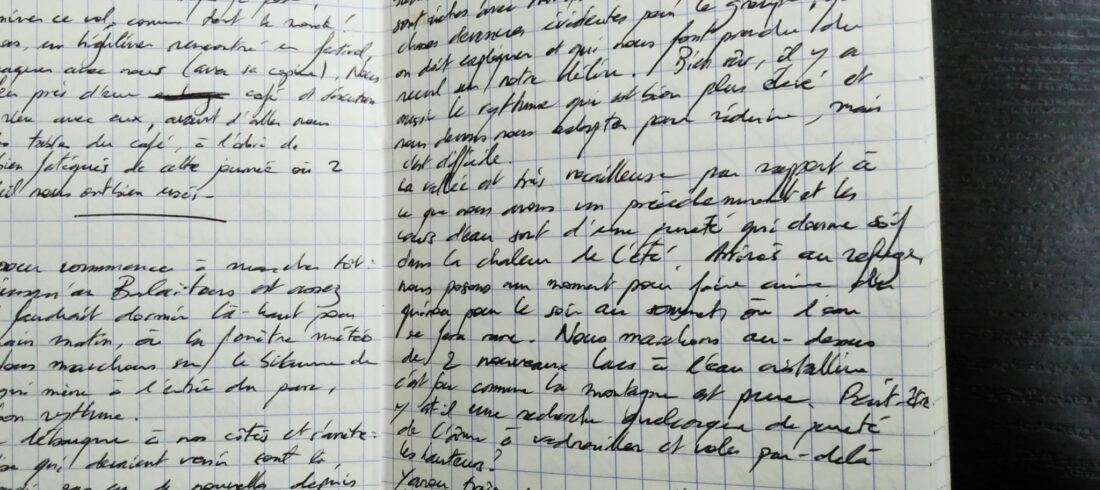 ce vol, comme tout le monde !
, un highliner rencontré en festival,
avec nous (avec sa copine). Nous
près d'eux café et discutons
avec eux, avant d'aller nous
tables du café, à l'abri de
bien fatigués de cette journée où 2
nous ont bien usés.
pour commencer à marcher tôt :
jusqu'au Balaïtous est assez
faudrait dormir là-haut pour
matin, où la fenêtre météo
marchons sur le bitume de
qui mène à l'entrée du parc,
rythme.
débarque à nos côtés et s'arrête :
qui devaient venir sont là
de nouvelles depuis
sont riches avec
choses devenues évidentes pour le groupe,
on doit expliquer et qui nous font prendre du
recul sur notre délire. Bien sûr, il y a
aussi le rythme qui est bien plus élevé et
nous devons nous adapter pour réduire, mais
c'est difficile.
La vallée est très rocailleuse par rapport à
ce que nous avons vu précédemment et les
cours d'eau sont d'une pureté qui donne soif
dans la chaleur de l'été. Arrivés au refuge,
nous posons un moment pour faire cuire du
quinoa pour le soir au sommet, où l'eau
se fera rare. Nous marchons au-dessus
de 2 nouveaux lacs à l'eau cristalline
c'est fou comme la montagne est pure. Peut-être
y a-t-il une recherche quelconque de pureté
de l'âme à vadrouiller et voler par-delà
les hauteurs ?